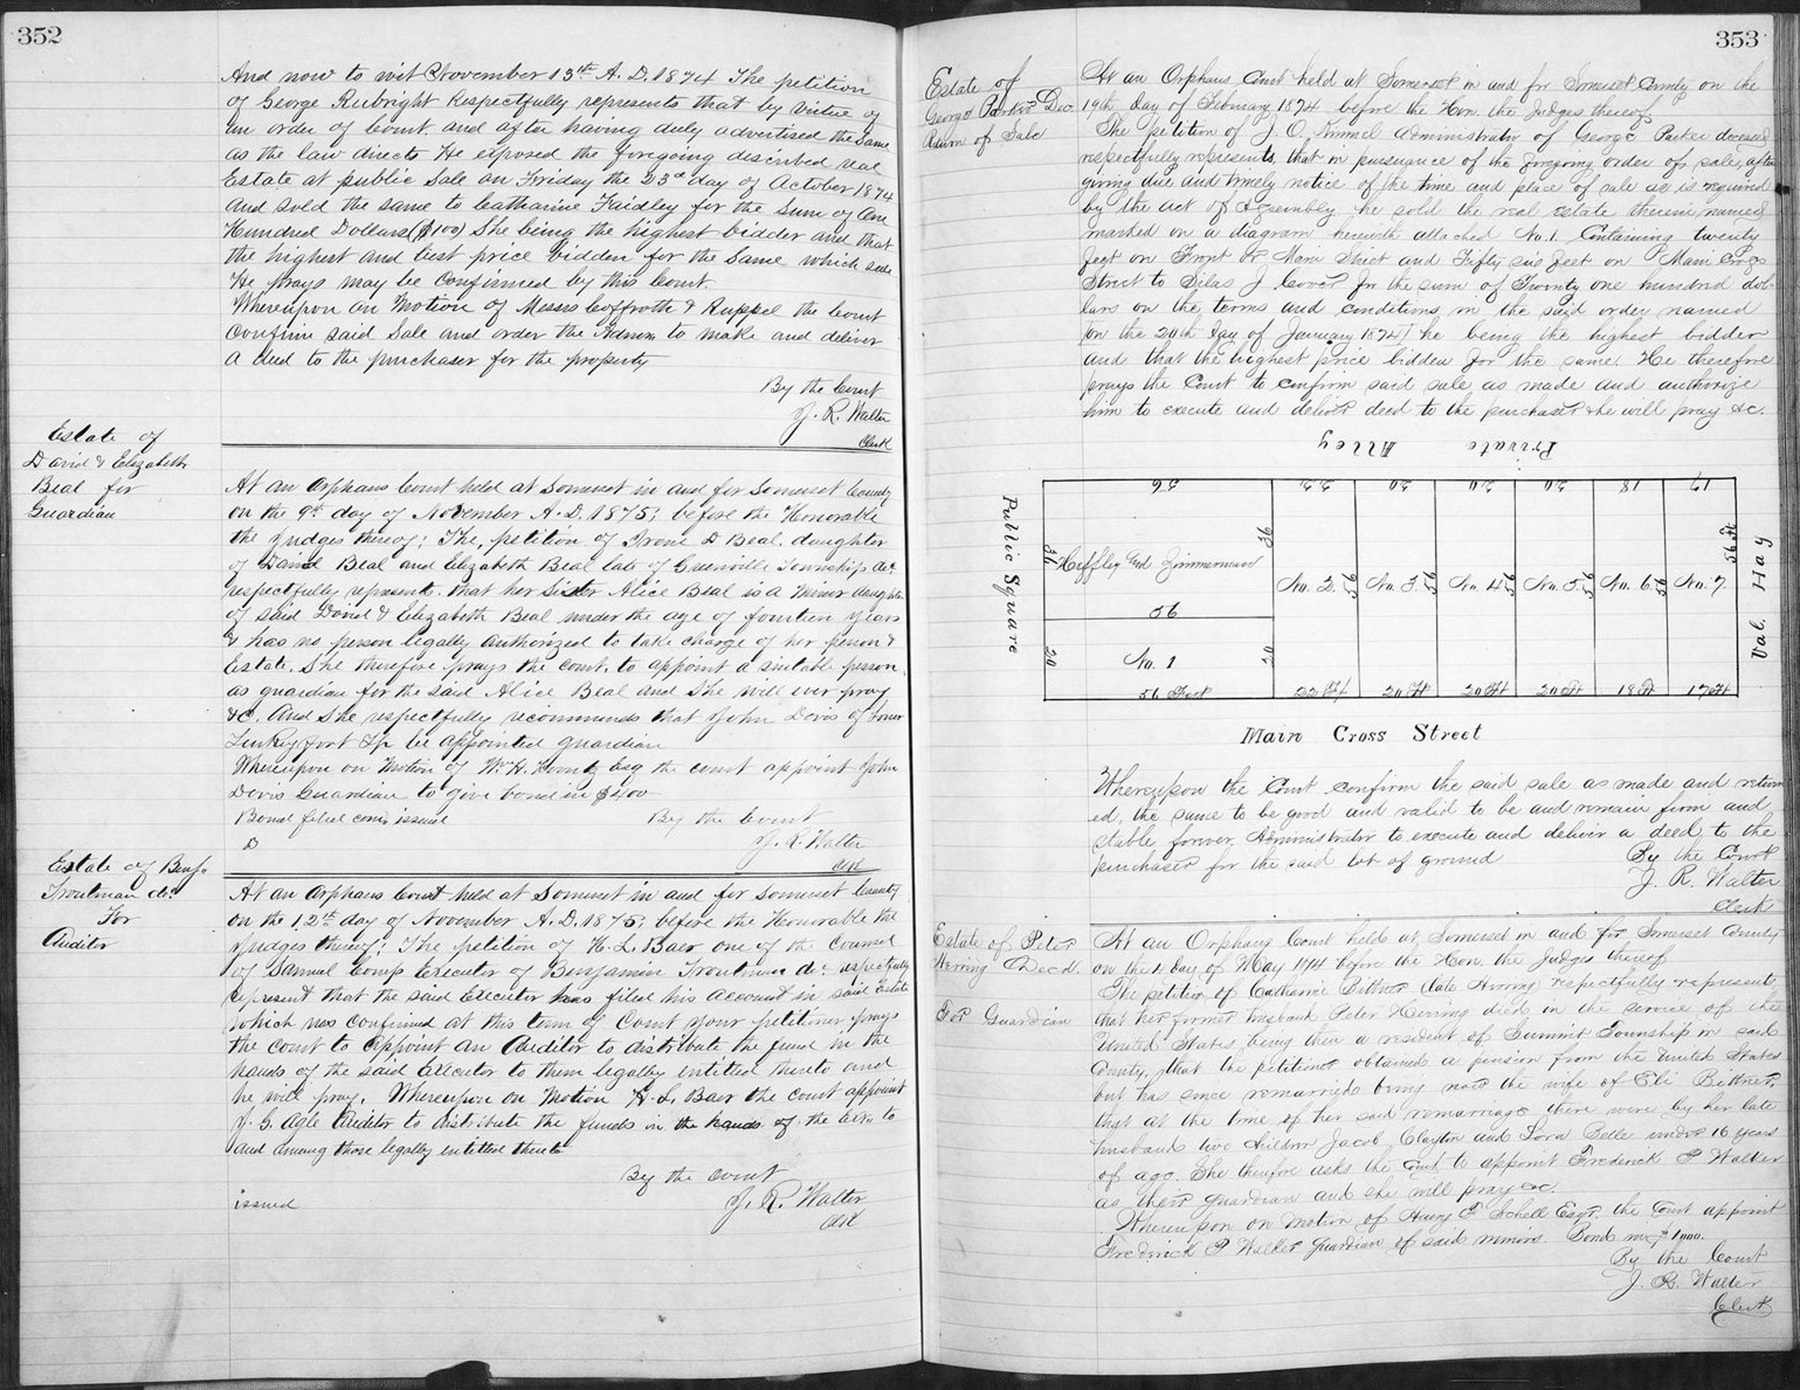 352
And now to wit November 13th A. D. 1874 The petition
of George Rubright Respectfully represents that by virtue of
an order of Court. and after having duly advertised the Same
as the law directs He exposed the foregoing discribed real
Estate at public Sale on Friday the 23d day of October 1874
and sold the same to Catharine Faidley for the Sum of One
Hundred Dollars ($100) She being the highest bidder and that
the highest and best price bidden for the Same which sale
He prays may be Confirmed by this Court.
Whereupon on Motion of Messrs Coffroth & Ruppel the Court
Confirm said Sale and order the Admr. to make and deliver
a deed to the purchaser for the property
By the Court
J. R. Walter
Clerk
Estate of
David & Elizabeth
Beal for
Guardian
At an Orphans Court held at Somerset in and for Somerset County
on the 9th day of November A. D. 1875; before the Honorable
the Judges thereof: The, petition of Irene D Beal. daughter
of David Beal and Elizabeth Beal late of Greenville Township decd
respectfully represents. that her Sister Alice Beal is a Minor daughter
of said David & Elizabeth Beal under the age of fourteen years
& has no person legally authorized to take charge of her person &
Estate. She therefore prays the court. to appoint a suitable person
as guardian for the said Alice Beal and She will ever pray
&c. And She respectfully recommends that John Davis of Lower
Turkeyfoot Tp be appointed guardian
Whereupon on Motion of Wm. H. Koontz Esq the court appoint John
Davis Guardian to give bond in $400
Bond filed issued By the Court
D J. R. Walter
Clk
Estate of Benj.
Troutman dec.
For
Auditor
At an Orphans Court held at Somerset in and for Somerset County
on the 12th day of November A. D. 1875; before the Honorable the
Judges thereof: The petition of H. L. Baer one of the Counsel
of Samuel Comp Executor of Benjamin Troutman dec. respectfully
represent that the said Executor has filed his account in said Estate
which was confirmed at this term of Court your petitioner prays
the court to appoint an Auditor to distribute the fund in the
hands of the said Executor to them legally entitled thereto and
he will pray. Whereupon on Motion H. L. Baer the court appoint
J. G. Ogle Auditor to distribute the funds in the hands of the Exr. to
and among those legally entitled thereto
By the court
issued J. R. Walter
Clk
353
Estate of
George Parker Dec.
Return of Sale
At an Orphans Court held at Somerset in and for Somerset County on the
19th day of February 1874 before the Hon. the Judges thereof
The petition of J. O. Kimmel administrator of George Parker deceased
respectfully represents, that in pursuance of the foregoing order of sale, after
giving due and timely notice of the time and place of sale as is required
by the act of Assembly he sold the real estate therein named
marked on a diagram herewith attached No. 1. Containing twenty
feet on Front or Main Street and Fifty six feet on Main Cross
Street to Silas J Cover for the sum of Twenty one hundred dol-
lars on the terms and conditions in the said order named
on the 20th day of January 1874 he being the highest bidder
and that the highest price bidden for the same. He therefore
prays the Court to confirm said sale as made and authorize
him to execute and deliver deed to the purchaser & he will pray &c.
Private Alley
56 22 20 20 20 18 17
Public Square
36 Heffley and Zimmerman 36
56
20 No. 1 20
56 Feet
No. 2. 56 No. 3. 56 No. 4 56 No. 5. 56 No. 6. 56 No. 7. 56 Ft
22 Ft 20 Ft 20 Ft 20 Ft 18 Ft 17 Ft
Val. Hay
Main Cross Street
Whereupon the Court confirm the said sale as made and return
ed, the same to be good and valid to be and remain firm and
stable forever, Administrator to execute and deliver a deed to the
purchaser for the said lot of ground
By the Court
J. R. Walter
Clerk
Estate of Peter
Herring Decd.
For Guardian
At an Orphans Court held at Somerset in and for Somerset County
on the 4 day of May 1874 before the Hon. the Judges thereof
The petition of Catharine Bittner (late Herring) respectfully represents,
that her former husband Peter Herring died in the service of the
United States, being then a resident of Summit Township in said
County, that the petitioner obtained a pension from the United States
but has since remarried being now the wife of Eli Bittner,
that at the time of her said remarriage there were by her late
husband two children Jacob Clayton and Lora Belle under 16 years
of age. She therefore asks the Court to appoint Frederick P Walker
as their guardian and she will pray &c.
Whereupon on motion of Henry F Schell Esqr. the Court appoint
Frederick P Walker guardian of said minors Bond in $1000.
By the Court
J. R. Walter
Clerk